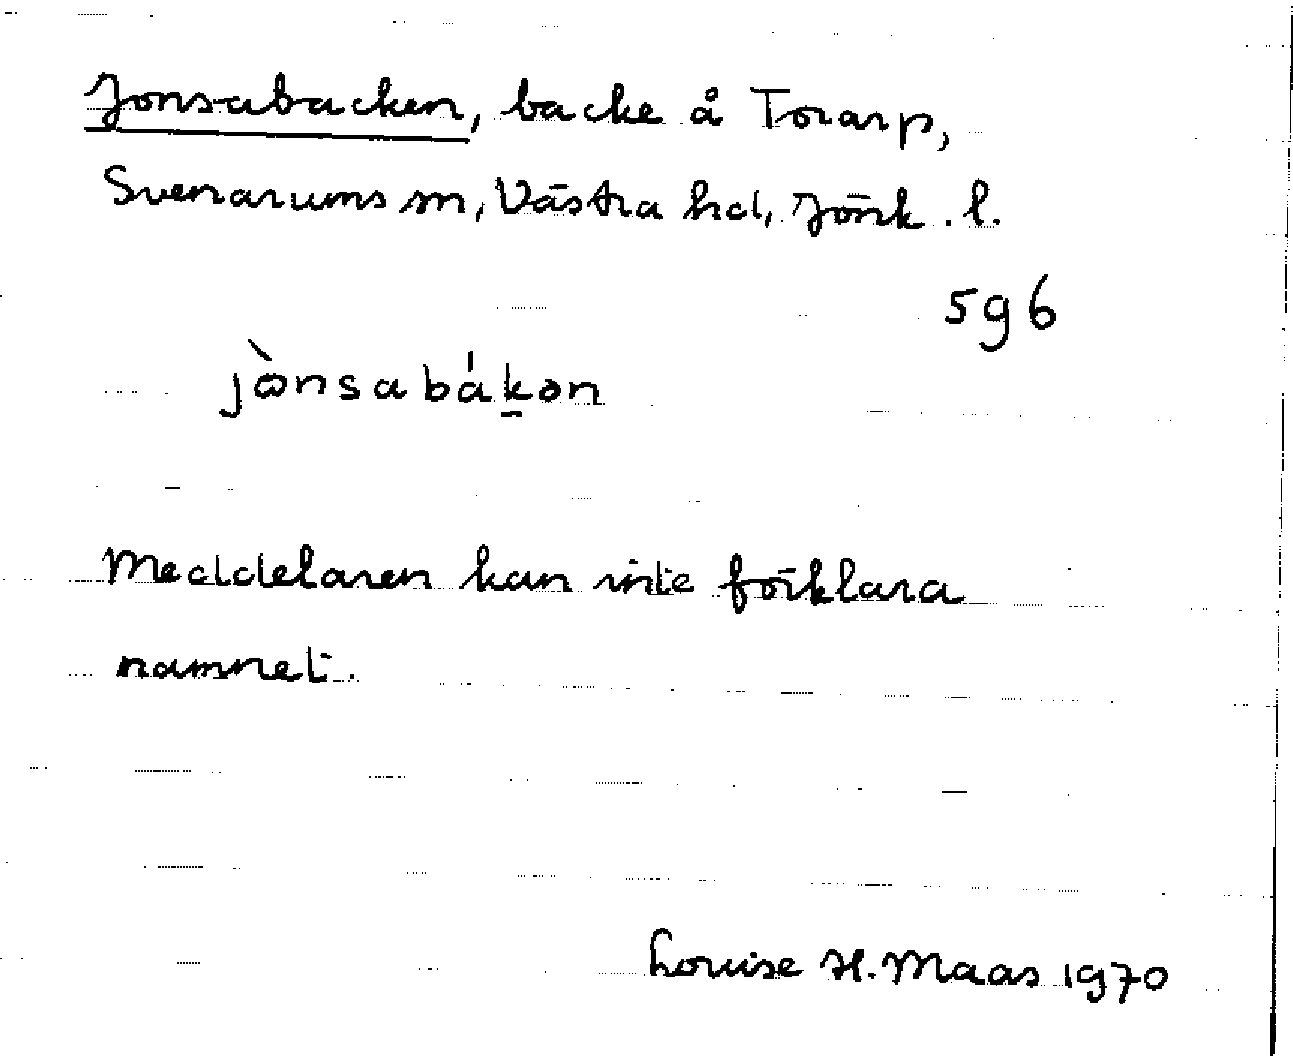 Jonsabacken, backe å Torarp,
Svenarums sn, Västra hd, Jönk. l.
596
jònsabákən
Meddelaren kan inte förklara
namnet.
Louise H. Maas 1970